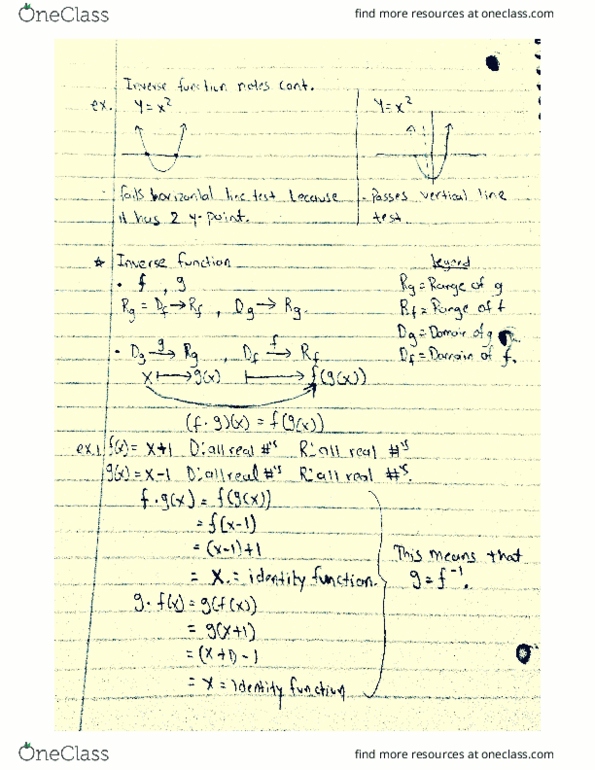 OneClass
find more resources at oneclass.com
Inverse function notes cont.
ex. y=x²
y=x²
· fails horizontal line test because it has 2 y-point.
· Passes vertical line test.
☆ Inverse function
legend
• f, g
Rg = Range of g
Rg = Df → Rf , Dg → Rg.
Rf = Range of f
Dg = Domain of g
• Dg →g Rg , Df →f Rf
Df = Domain of f.
x ↦ g(x) ↦ f(g(x))
(f·g)(x) = f(g(x))
ex.1 f(x) = x+1 D: all real #'s R: all real #'s
g(x) = x-1 D: all real #'s R: all real #'s.
f·g(x) = f(g(x))
= f(x-1)
= (x-1)+1
= x. = identity function.
This means that
g = f⁻¹.
g·f(x) = g(f(x))
= g(x+1)
= (x+1)-1
= x = identity function
OneClass
find more resources at oneclass.com